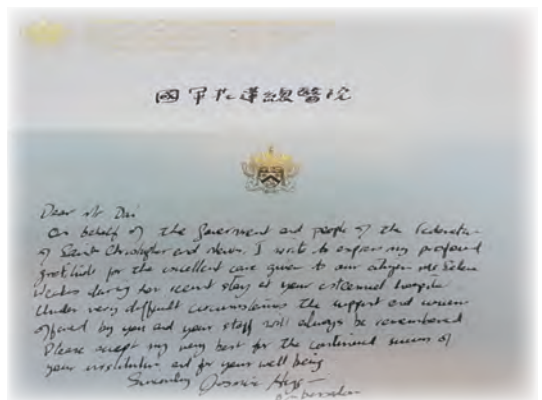 國軍花蓮總醫院
Dear Mr Dai
On behalf of the Government and people of the Federation
of Saint Christopher and Nevis. I write to express my profound
gratitude for the excellent care given to our citizen Ms
during her recent stay at your esteemed hospital
Under very difficult circumstances the support and
offered by you and your staff will always be remembered
Please accept my very best for the continued success of
your institution and for your well being
Sincerely Jasmine
Ambassador